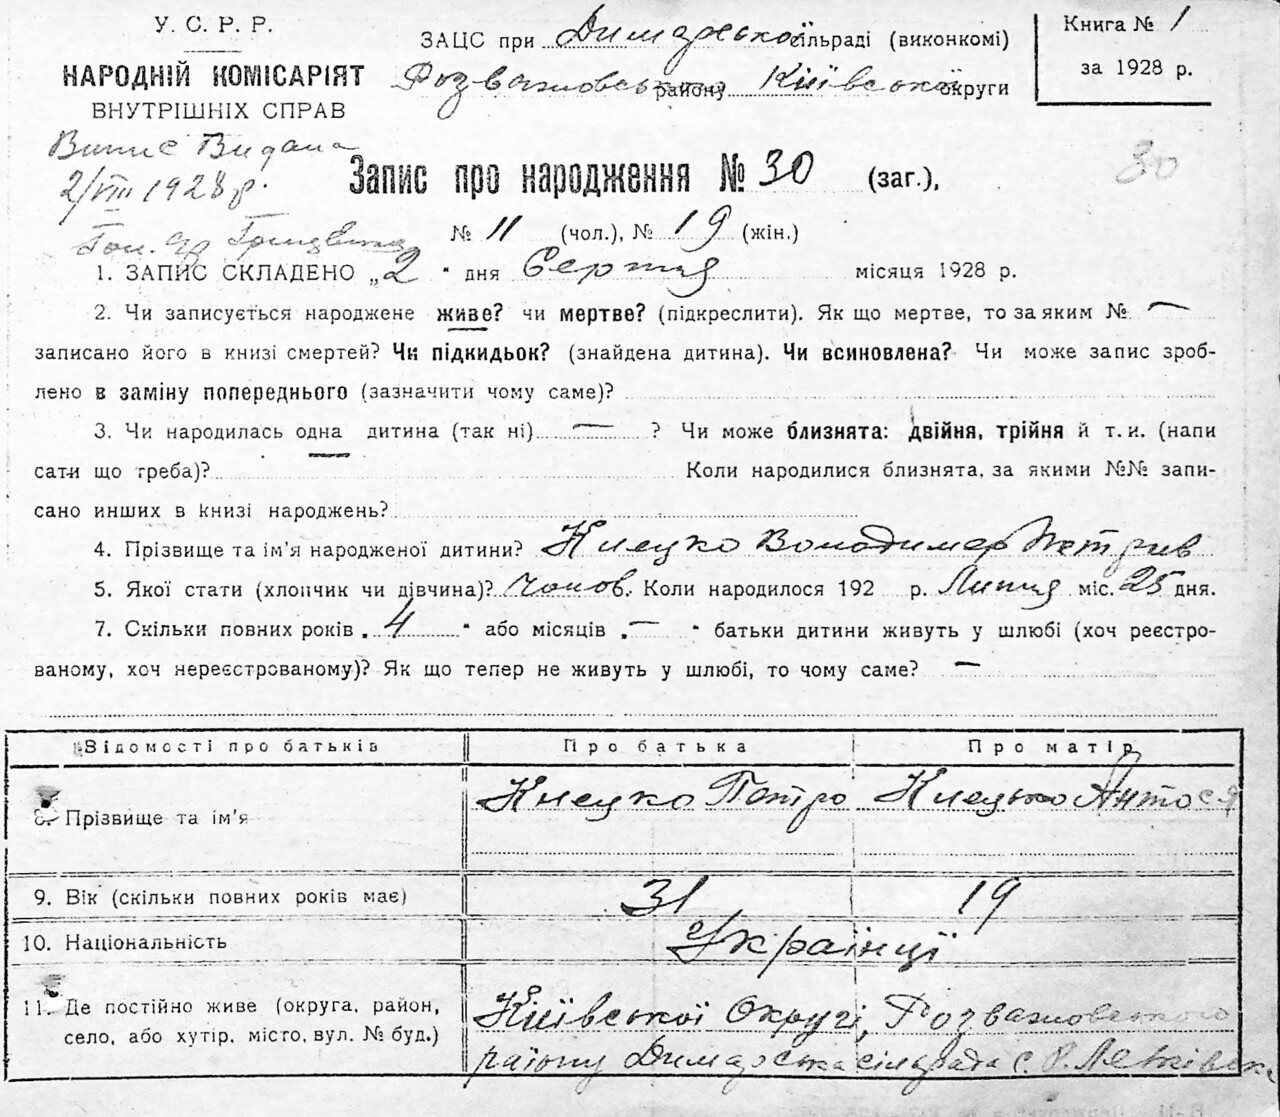 У. С. Р. Р.
НАРОДНІЙ КОМІСАРІЯТ
ВНУТРІШНІХ СПРАВ
ЗАЦС при Димарської сільраді (виконкомі)
Розважовського району Київської округи
Книга № 1
за 1928 р.
Випис Видана
2/VIII 1928 р.
30
Запис про народження № 30 (заг.),
№ 11 (чол.), № 19 (жін.)
1. ЗАПИС СКЛАДЕНО „2 " дня Серпня місяця 1928 р.
2. Чи записується народжене живе? чи мертве? (підкреслити). Як що мертве, то за яким № —
записано його в книзі смертей? Чи підкидьок? (знайдена дитина). Чи всиновлена? Чи може запис зроб-
лено в заміну попереднього (зазначити чому саме)?
3. Чи народилась одна дитина (так ні) — ? Чи може близнята: двійня, трійня й т. и. (напи
сати що треба)? Коли народилися близнята, за якими №№ запи-
сано инших в книзі народжень?
4. Прізвище та ім'я народженої дитини? Киецко Володимер Петрив
5. Якої стати (хлопчик чи дівчина)? Чолов. Коли народилося 192 р. Липня міс. 25 дня.
7. Скільки повних років „ 4 " або місяців „ — " батьки дитини живуть у шлюбі (хоч реєстро-
ваному, хоч нереєстрованому)? Як що тепер не живуть у шлюбі, то чому саме? —
Відомості про батьків Про батька Про матір
8. Прізвище та ім'я Киецко Петро Киецько Антося
9. Вік (скільки повних років має) 31 19
10. Національність Українці
11. Де постійно живе (округа, район, Київської Округі, Розважовського
село, або хутір, місто, вул. № буд.) району Димарська сільрада с.